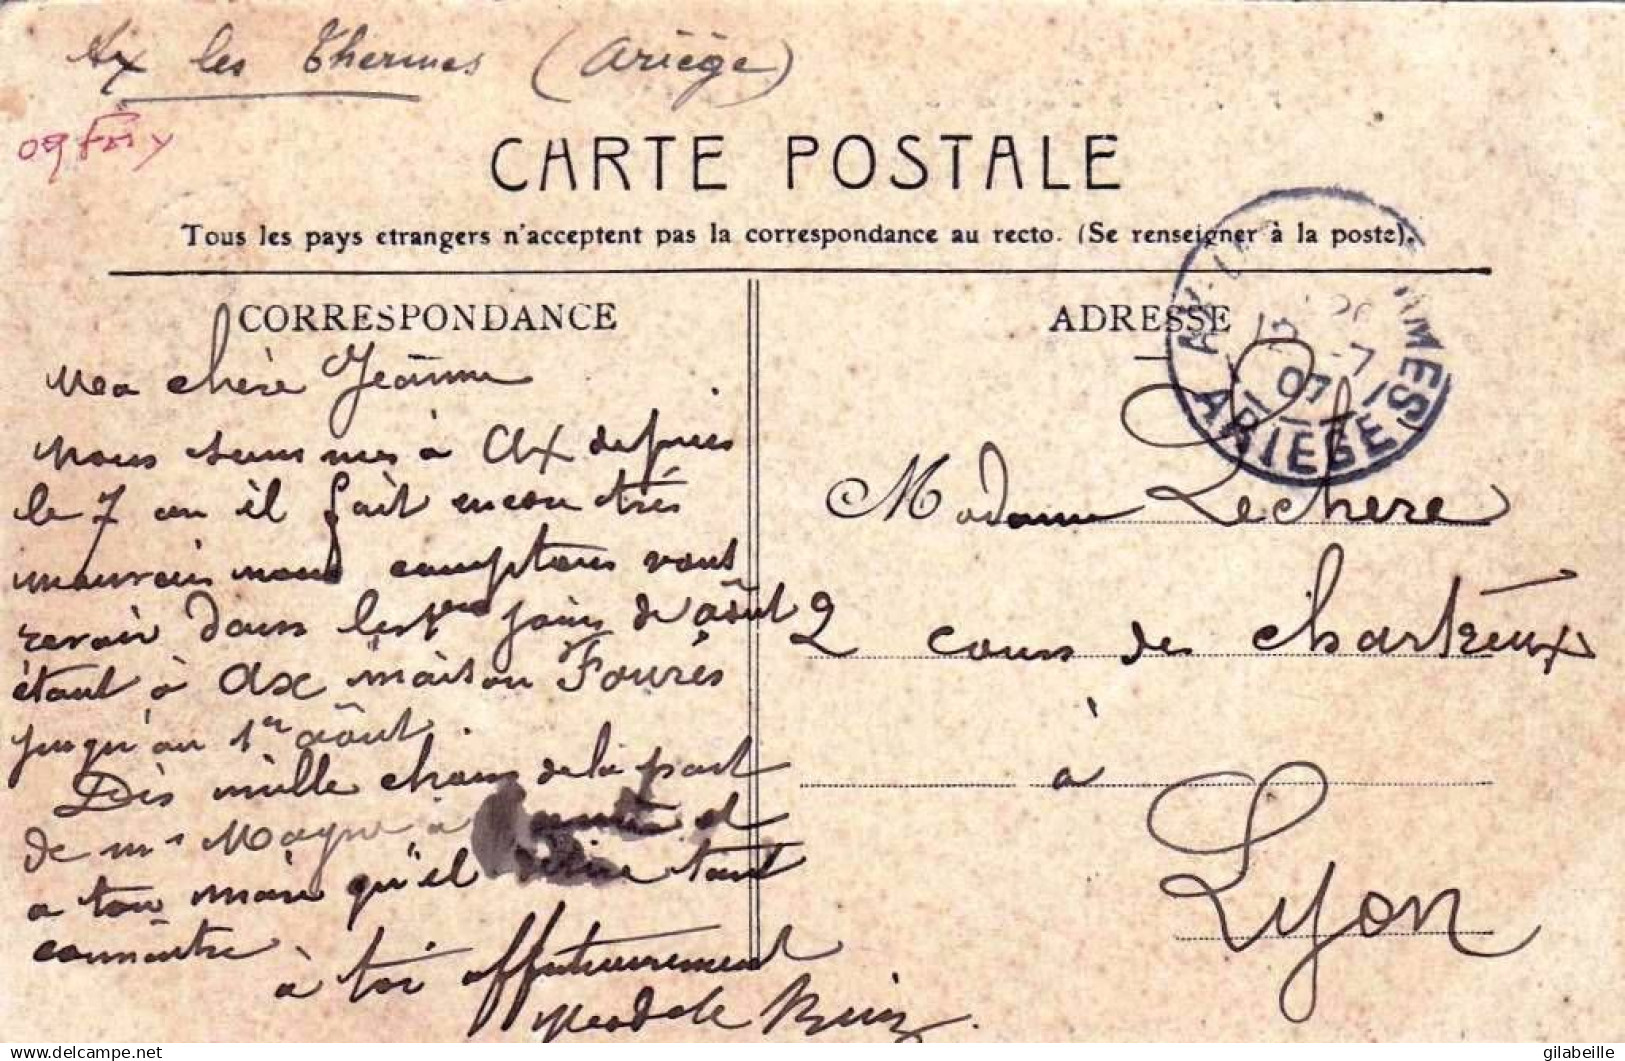 Ax les Thermes (Ariège)
09
CARTE POSTALE
Tous les pays etrangers n'acceptent pas la correspondance au recto. (Se renseigner à la poste).
CORRESPONDANCE
Ma chère Jeanne
nous sommes à Ax depuis
le 7 ou il fait encore très
mauvais nous comptons vous
revoir dans les 1ers jours de août
étant à Ax maison Fourès
jusqu'au 1er août.
Dis mille choses de la part
de mr Magne à et
a ton mari qu'il désire tant
connaitre
à toi affectueusement
ADRESSE
Madame Lechere
2 cours des chartreux
à
Lyon
ARIÈGE
07
delcampe.net
gilabeille